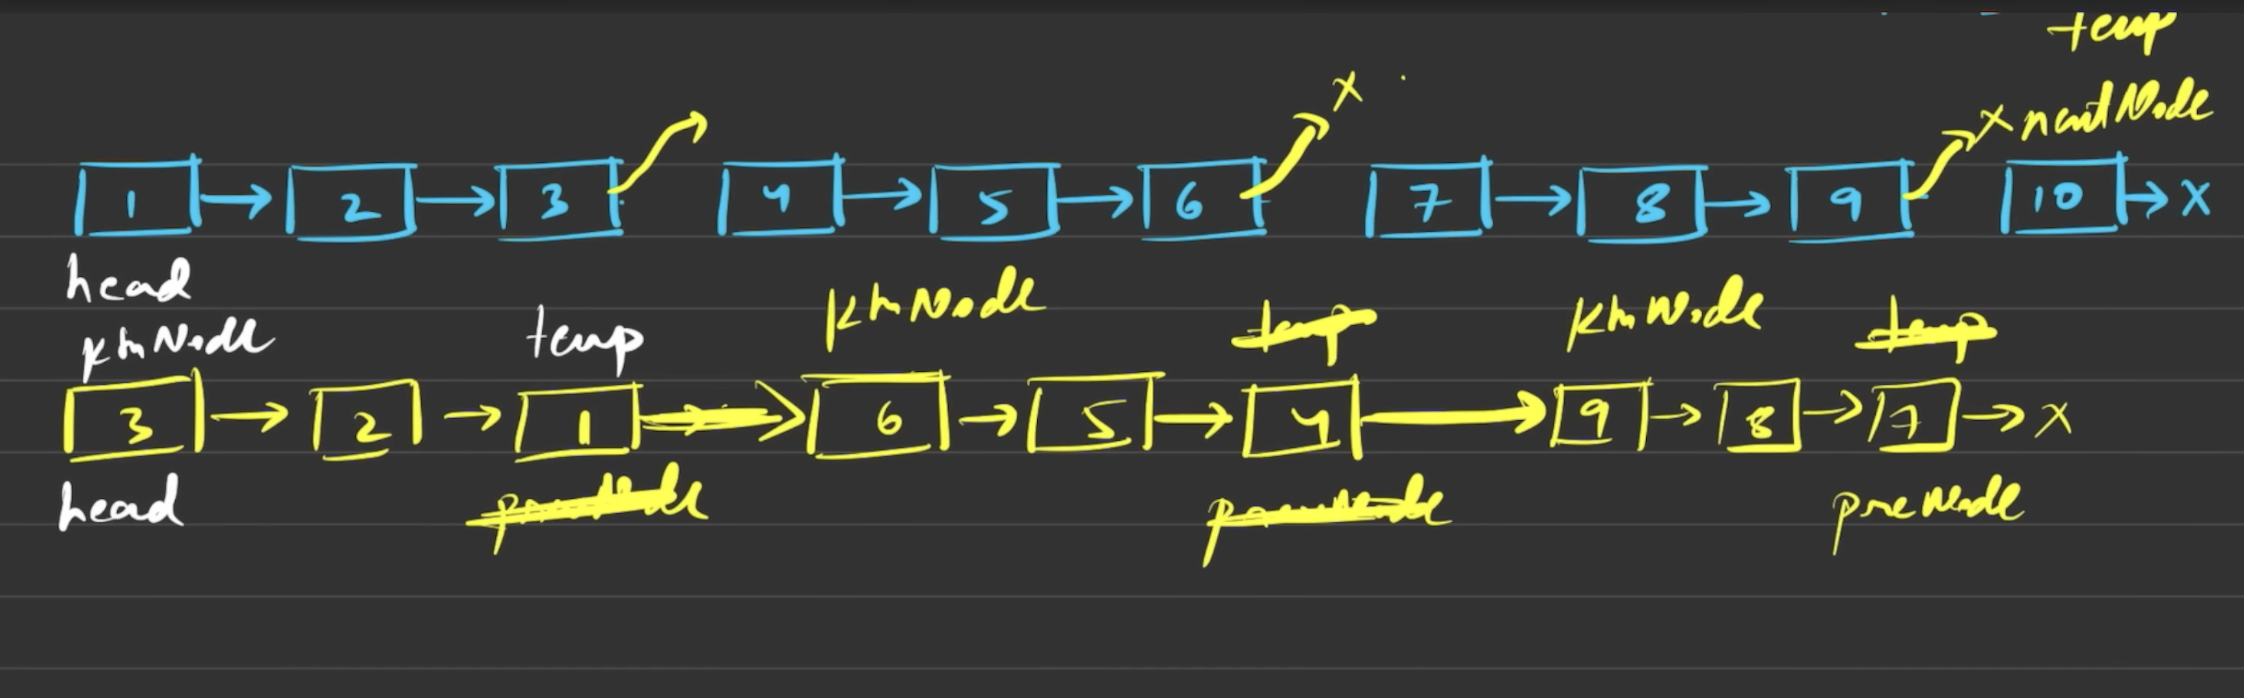 temp
x
x nextNode
1 → 2 → 3 4 → 5 → 6 7 → 8 → 9 10 → x
head
kthNode temp kthNode temp kthNode temp
3 → 2 → 1 → 6 → 5 → 4 → 9 → 8 → 7 → x
head prevNode prevNode preNode